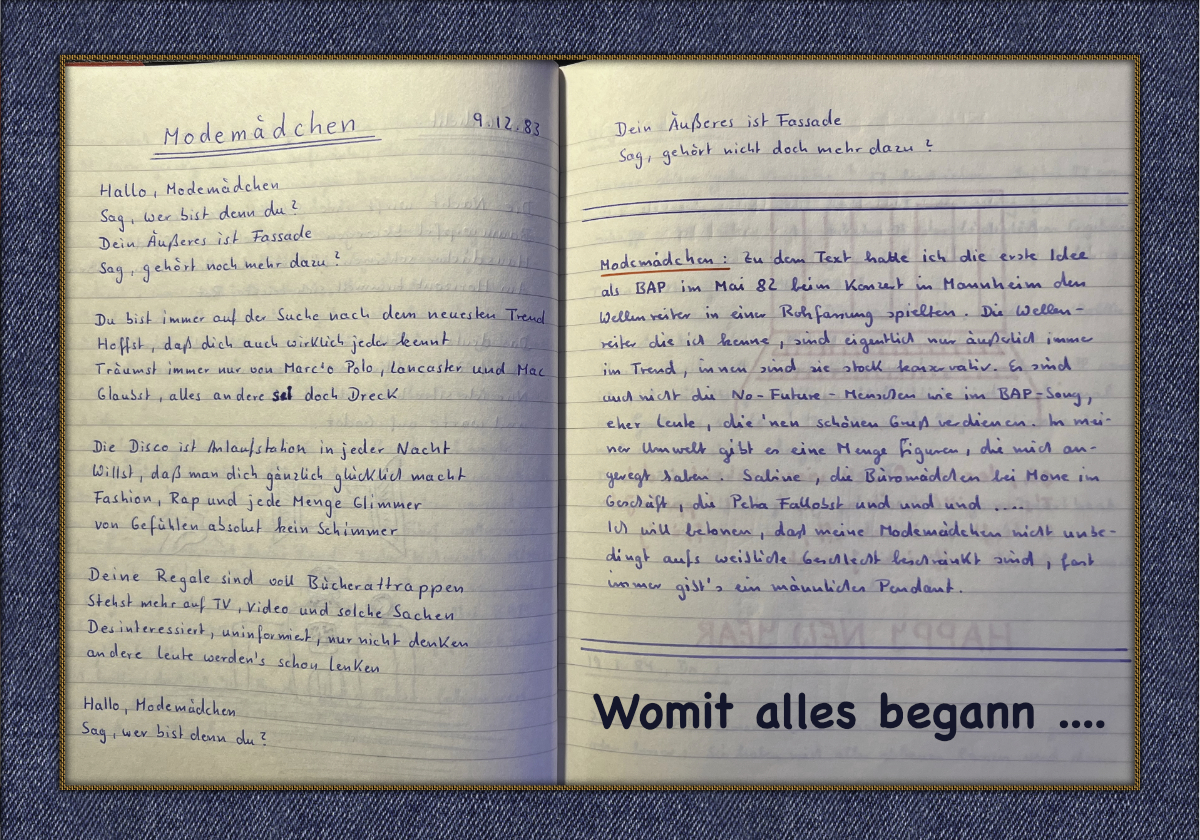 Modemädchen
9.12.83
Hallo, Modemädchen
Sag, wer bist denn du?
Dein Äußeres ist Fassade
Sag, gehört noch mehr dazu?
Du bist immer auf der Suche nach dem neuesten Trend
Hoffst, daß dich auch wirklich jeder kennt
Träumst immer nur von Marc'o Polo, Lancaster und Mac
Glaubst, alles andere sei doch Dreck
Die Disco ist Anlaufstation in jeder Nacht
Willst, daß man dich gänzlich glücklich macht
Fashion, Rap und jede Menge Glimmer
von Gefühlen absolut kein Schimmer
Deine Regale sind voll Bücherattrappen
Stehst mehr auf TV, Video und solche Sachen
Desinteressiert, uninformiert, nur nicht denken
andere Leute werden's schon lenken
Hallo, Modemädchen
Sag, wer bist denn du?
Dein Äußeres ist Fassade
Sag, gehört nicht doch mehr dazu?
Modemädchen: Zu dem Text hatte ich die erste Idee
als BAP im Mai 82 beim Konzert in Mannheim den
Wellenreiter in einer Rohfassung spielten. Die Wellen-
reiter die ich kenne, sind eigentlich nur äußerlich immer
im Trend, innen sind sie stock konservativ. Es sind
auch nicht die No-Future-Menschen wie im BAP-Song,
eher Leute, die 'nen schönen Gruß verdienen. In mei-
ner Umwelt gibt es eine Menge Figuren, die mich an-
geregt haben. Sabine, die Büromädchen bei Mone im
Geschäft, die Petra Fallobst und und und ....
Ich will betonen, daß meine Modemädchen nicht unbe-
dingt aufs weibliche Geschlecht beschränkt sind, fast
immer gibt's ein männliches Pendant.
HAPPY NEW YEAR
Womit alles begann ....